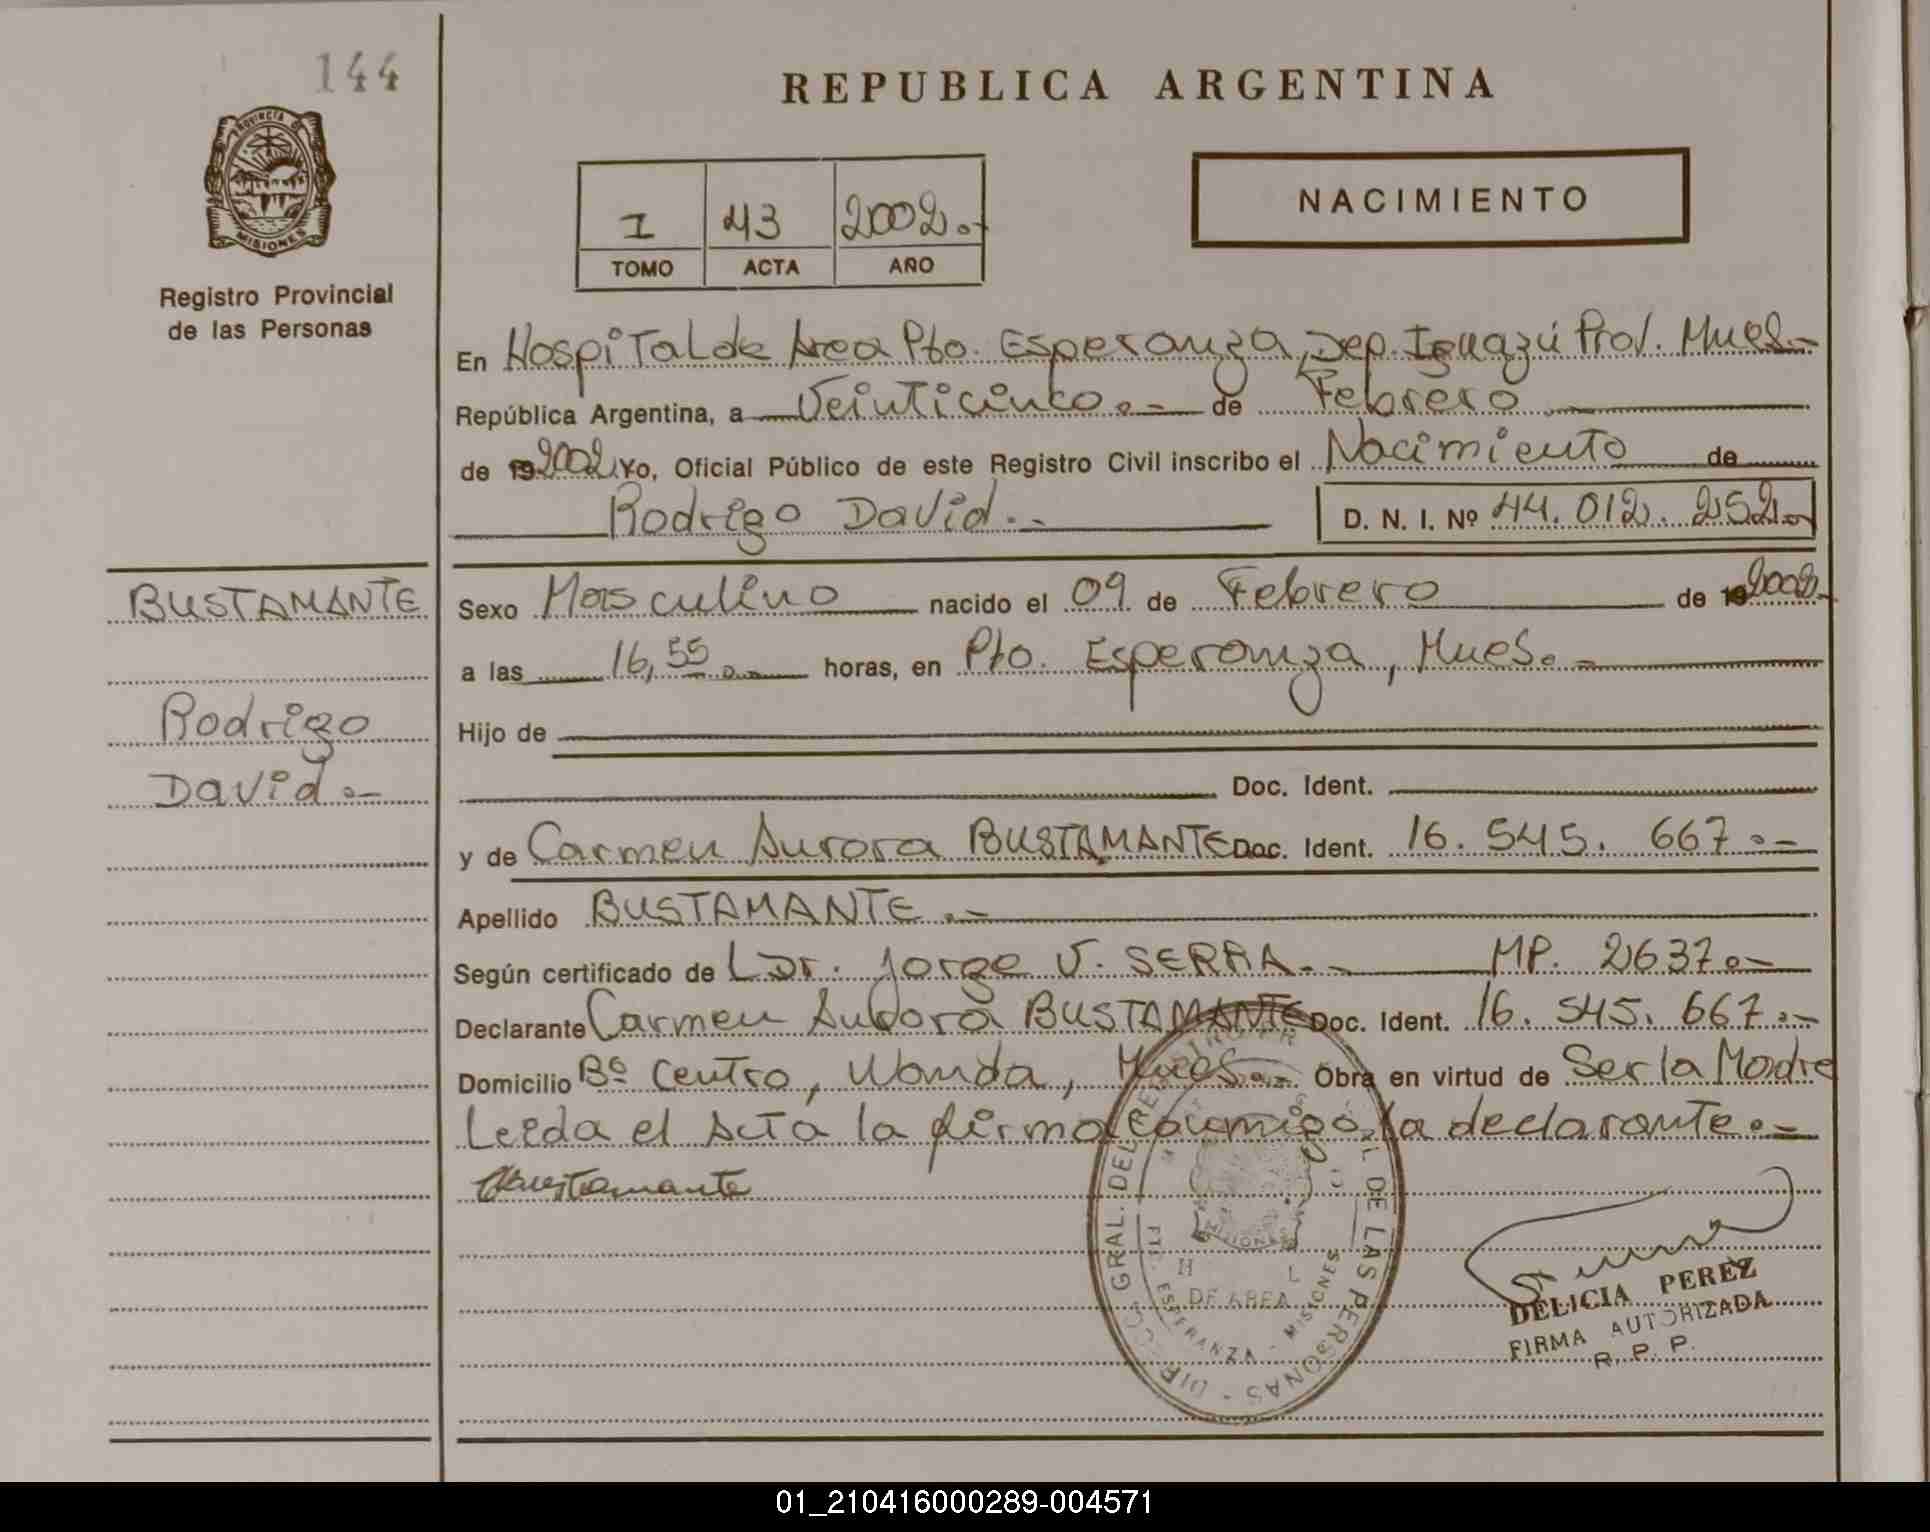 144
REPUBLICA ARGENTINA
PROVINCIA DE
MISIONES
Registro Provincial
de las Personas
I 43 2002.-
TOMO ACTA AÑO
NACIMIENTO
En Hospital de Area Pto. Esperanza, Dep. Iguazú Prov. Mnes.-
República Argentina, a Veinticinco.- de Febrero
de 19 2002 Yo, Oficial Público de este Registro Civil inscribo el Nacimiento de
Rodrigo David.-
D. N. I. Nº 44.012.252.-
BUSTAMANTE
Rodrigo
David.-
Sexo Masculino nacido el 09 de Febrero de 19 2002-
a las 16,55.- horas, en Pto. Esperanza, Mnes.-
Hijo de
Doc. Ident.
y de Carmen Aurora BUSTAMANTE Doc. Ident. 16.545.667.-
Apellido BUSTAMANTE.-
Según certificado de Dr. Jorge V. SERRA.- MP. 2637.-
Declarante Carmen Aurora BUSTAMANTE Doc. Ident. 16.545.667.-
Domicilio Bº Centro, Wanda, Mnes.- Obra en virtud de Ser la Madre
Leida el Acta la firma conmigo, la declarante.-
Bustamante
DELICIA PEREZ
FIRMA AUTORIZADA
R. P. P.
GRAL. DEL DE LAS PERSONAS
MISIONES
DE AREA
ESPERANZA - MISIONES
01_210416000289-004571